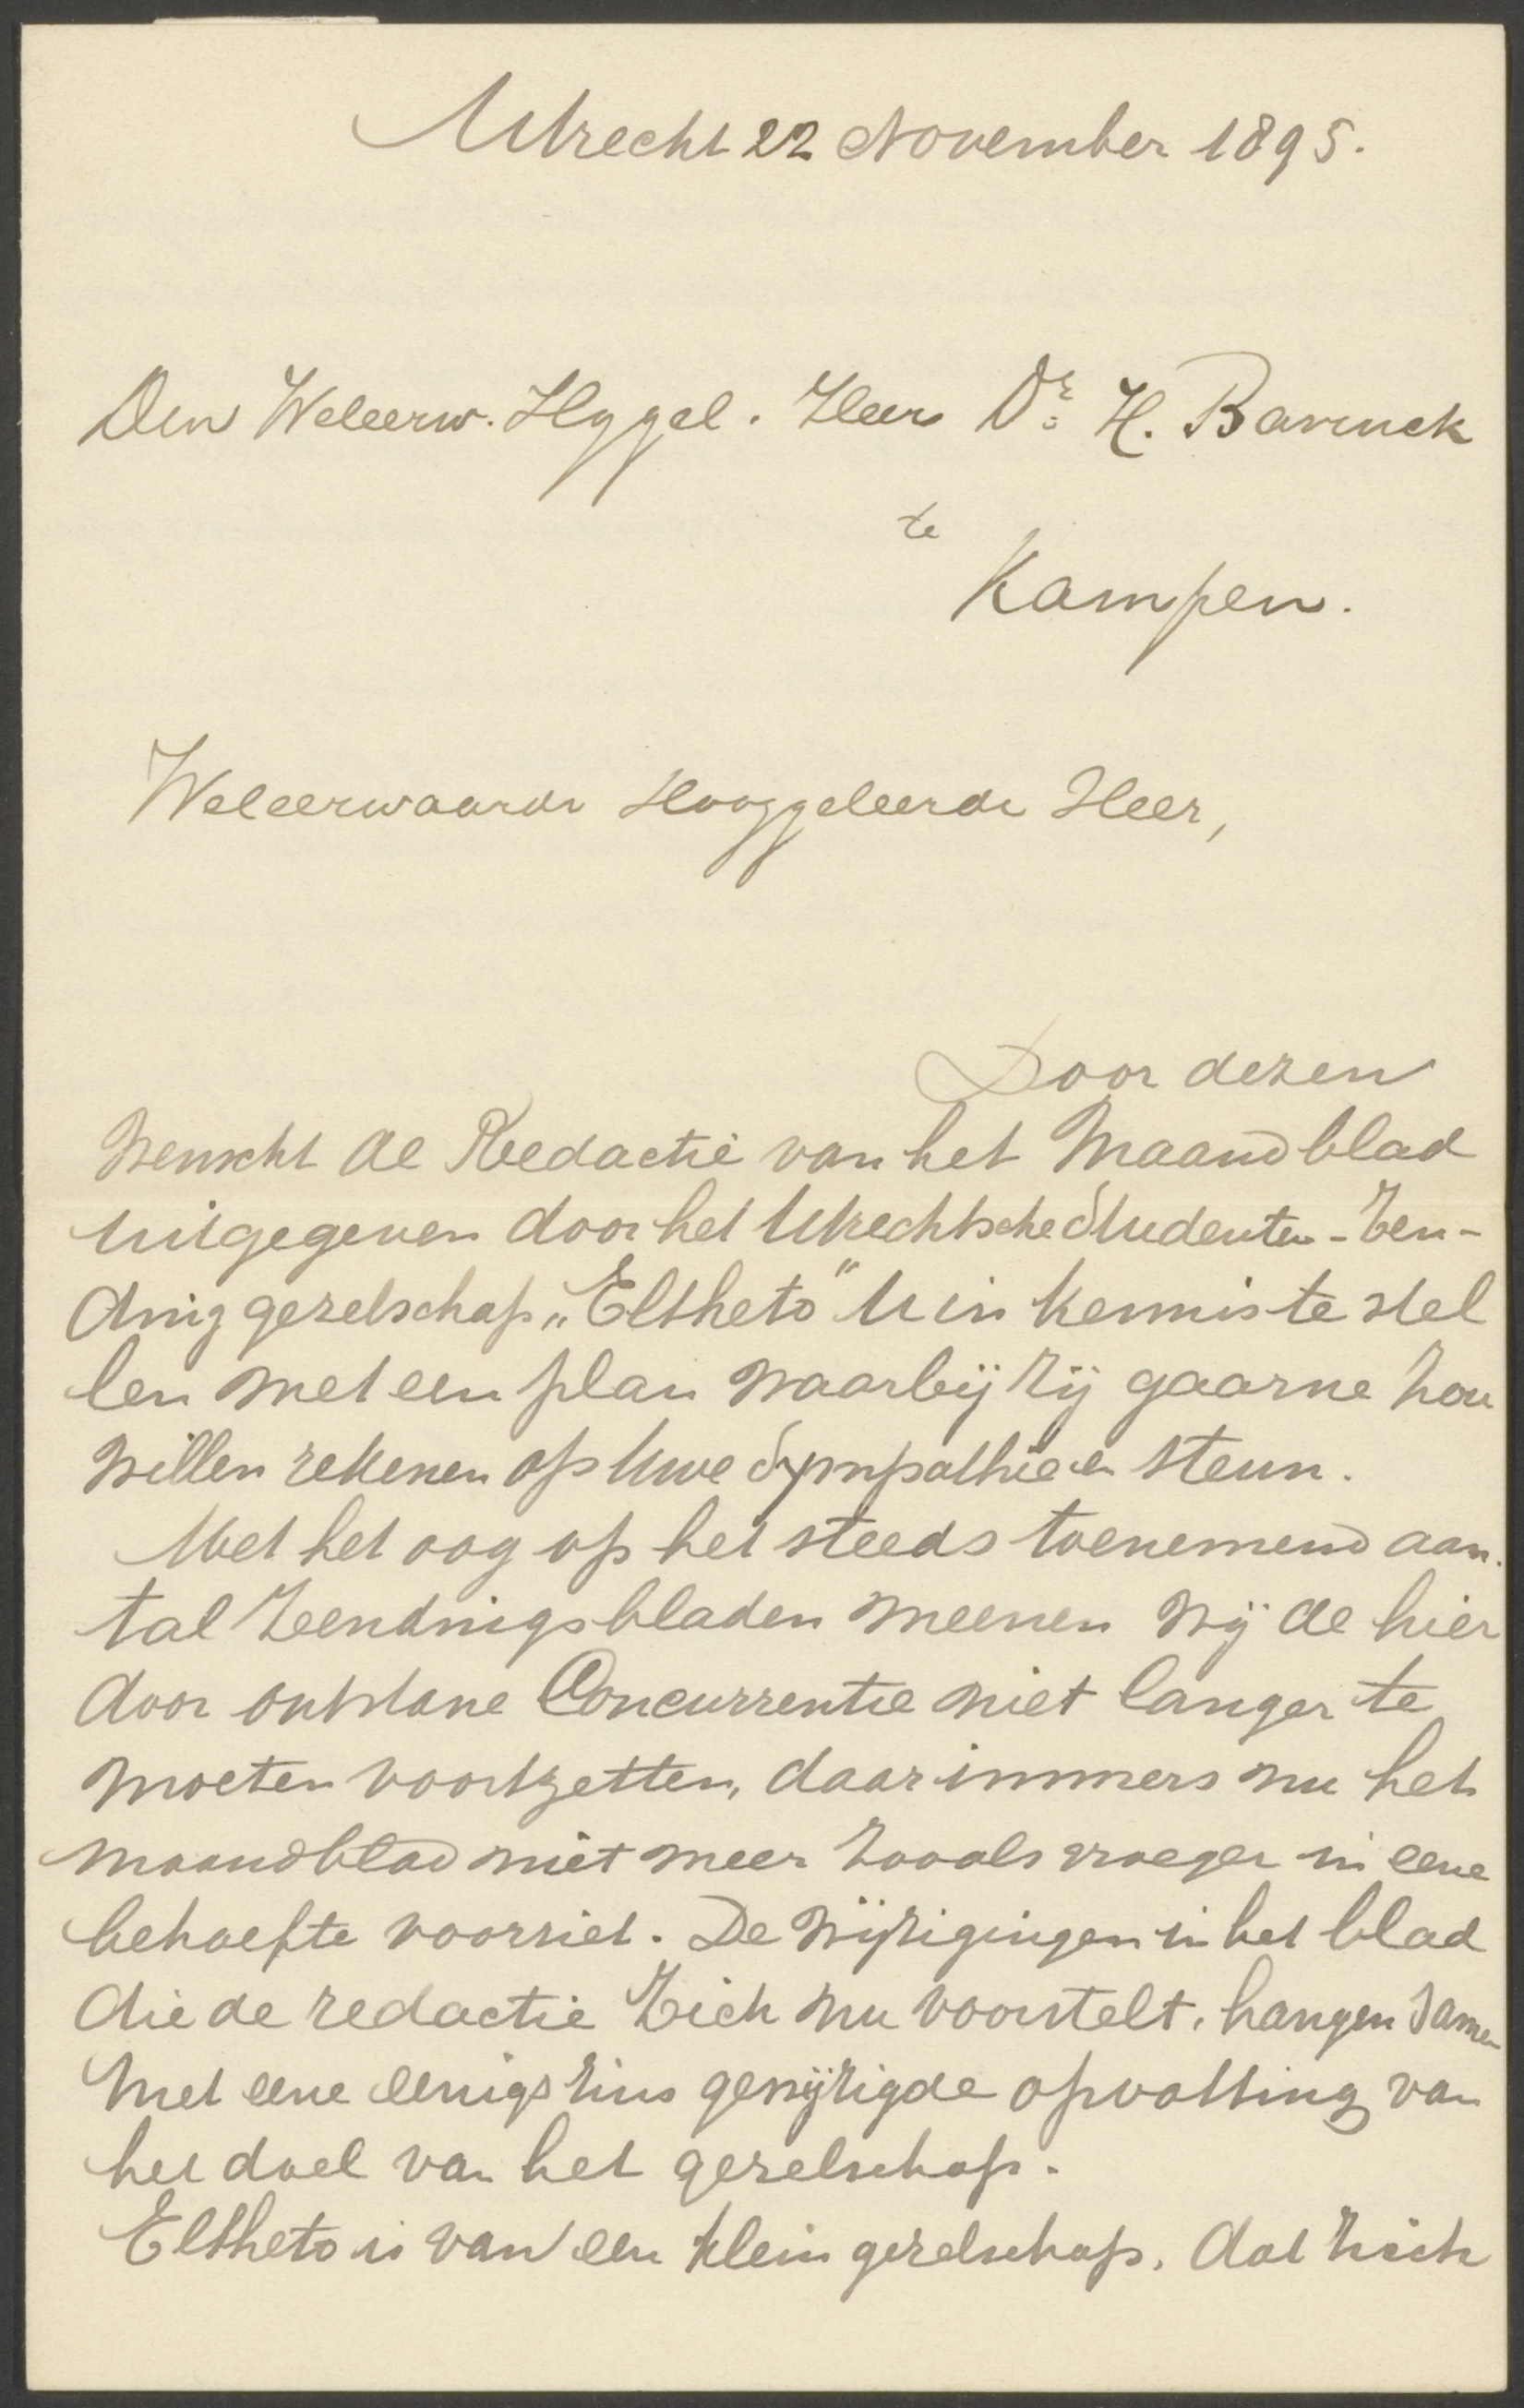 Utrecht 22 November 1895.
Den Weleerw. Hggel. Heer Dr. H. Bavinck
te
Kampen.
Weleerwaarde Hooggeleerde Heer,
Door dezen
wenscht de Redactie van het Maandblad
uitgegeven door het Utrechtsche Studenten-Zen-
dinggezelschap „Eltheto" U in kennis te stel
len met een plan waarbij zij gaarne zou
willen rekenen op Uwe Sympathie en steun.
Met het oog op het steeds toenemend aan-
tal Zendingsbladen meenen wij de hier
door ontstane Concurrentie niet langer te
moeten voortzetten, daar immers nu het
maandblad niet meer zooals vroeger in eene
behoefte voorziet. De wijzigingen in het blad
die de redactie zich nu voorstelt, hangen samen
met eene eenigszins gewijzigde opvatting van
het doel van het gezelschap.
Eltheto is van een klein gezelschap, dat zich